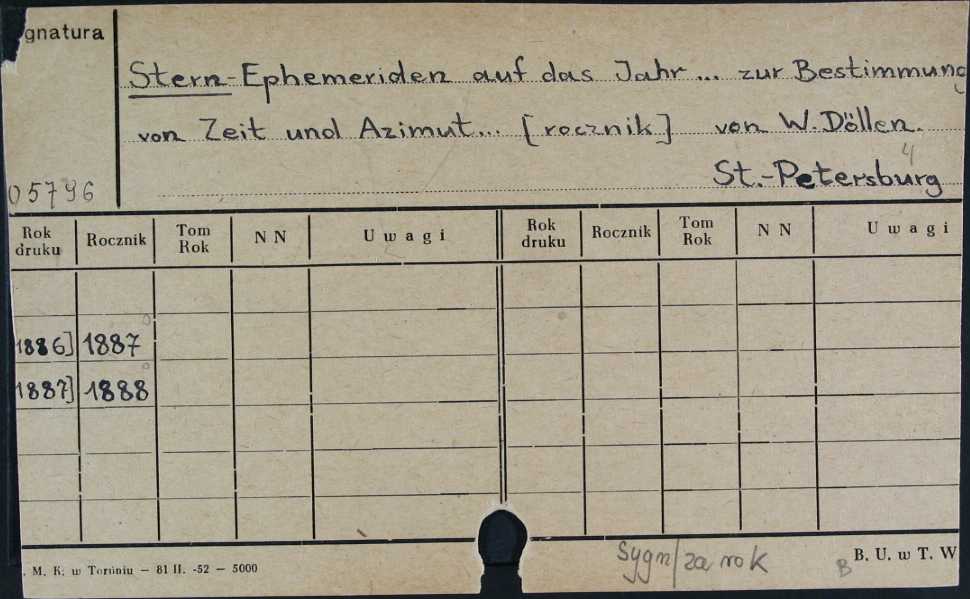 gnatura
Stern-Ephemeriden auf das Jahr... zur Bestimmung
von Zeit und Azimut... [rocznik] von W. Döllen.
4
St.-Petersburg
05796
Rok druku Rocznik Tom Rok N N Uwagi Rok druku Rocznik Tom Rok N N Uwagi
1886] 1887
1887] 1888
Sygn/za rok
. M. K. w Toruniu — 81 II. -52 — 5000
B B. U. w T. W